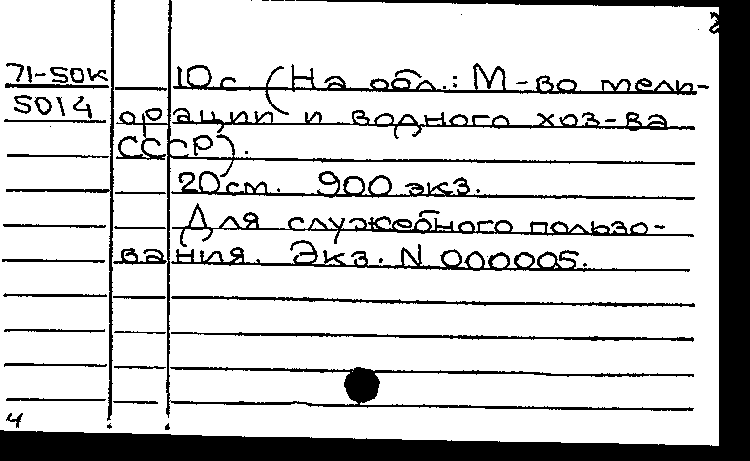 71-50к 10с (На обл.: М-во мели-
5014 орации и водного хоз-ва
СССР).
20см. 900 экз.
Для служебного пользо-
вания. Экз. N 000005.
4